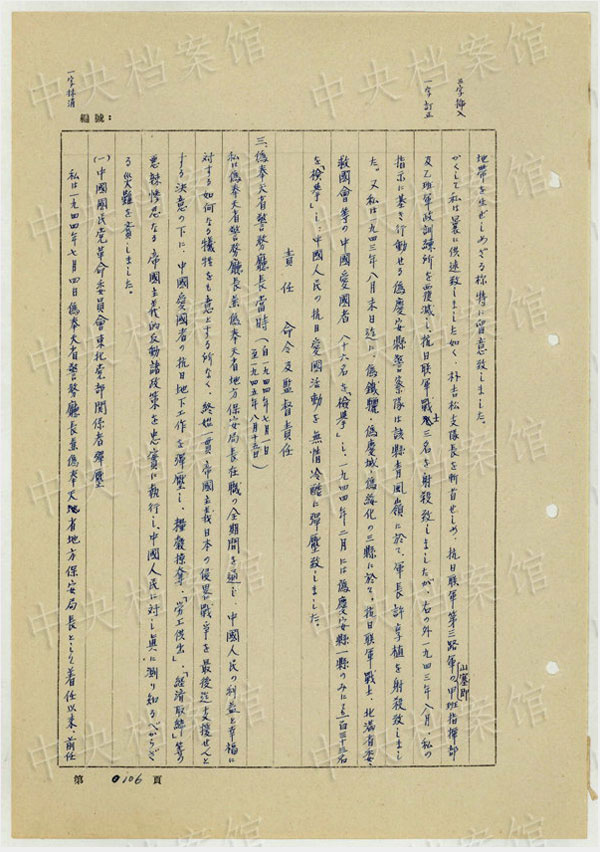 五字插入
一字訂正
一字抹消
編號：
地帶を生ぜしめざる様特に留意致しました。
かくして私は曩に供述致しました如く、朴吉松支隊長を斬首せしめ、抗日联軍第三路軍の山寨即甲班指揮部
及乙班軍政訓練所を覆滅し、抗日联軍戰士三名を射殺致しましたが、右の外一九四三年八月、私の
指示に基き行動せる偽慶安縣警察隊は該縣青風嶺に於て、軍長許亨植を射殺致しまし
た。又私は一九四三年八月末日迄に、偽鐵驪、偽慶城、偽綏化の三縣に於て、抗日联軍戰士、北滿省委、
救國會等の中國愛國者 八十六名を「檢擧」し、一九四四年二月には偽慶安縣一縣のみにても一百三十三名
を「檢擧」し、中國人民の抗日愛國活動を無情冷酷に彈壓致しました。
責任 命令及監督責任
三、偽奉天省警務廳長當時（自一九四四年七月一日 至一九四五年八月十五日）
私は偽奉天省警務廳長兼偽奉天省地方保安局長在職の全期間を通し、中國人民の利益と幸福に
対する如何なる犠牲をも意とする所なく、終始一貫帝國主義日本の侵畧戰争を最後迄支援せんと
する決意の下に、中國愛國者の抗日地下工作を彈壓し、糧穀掠奪、「勞工供出」、「経済取締」等の
悪辣惨忍なる帝國主義的反動諸政策を忠實に執行し、中國人民に対し眞に測り知るべからざ
る災難を齎しました。
(一)中國國民党革命委員會東北党部関係者彈壓
私は一九四四年七月四日偽奉天省警務廳長兼偽奉天省地方保安局長として着任以来、前任
第 0106 頁
中央档案馆